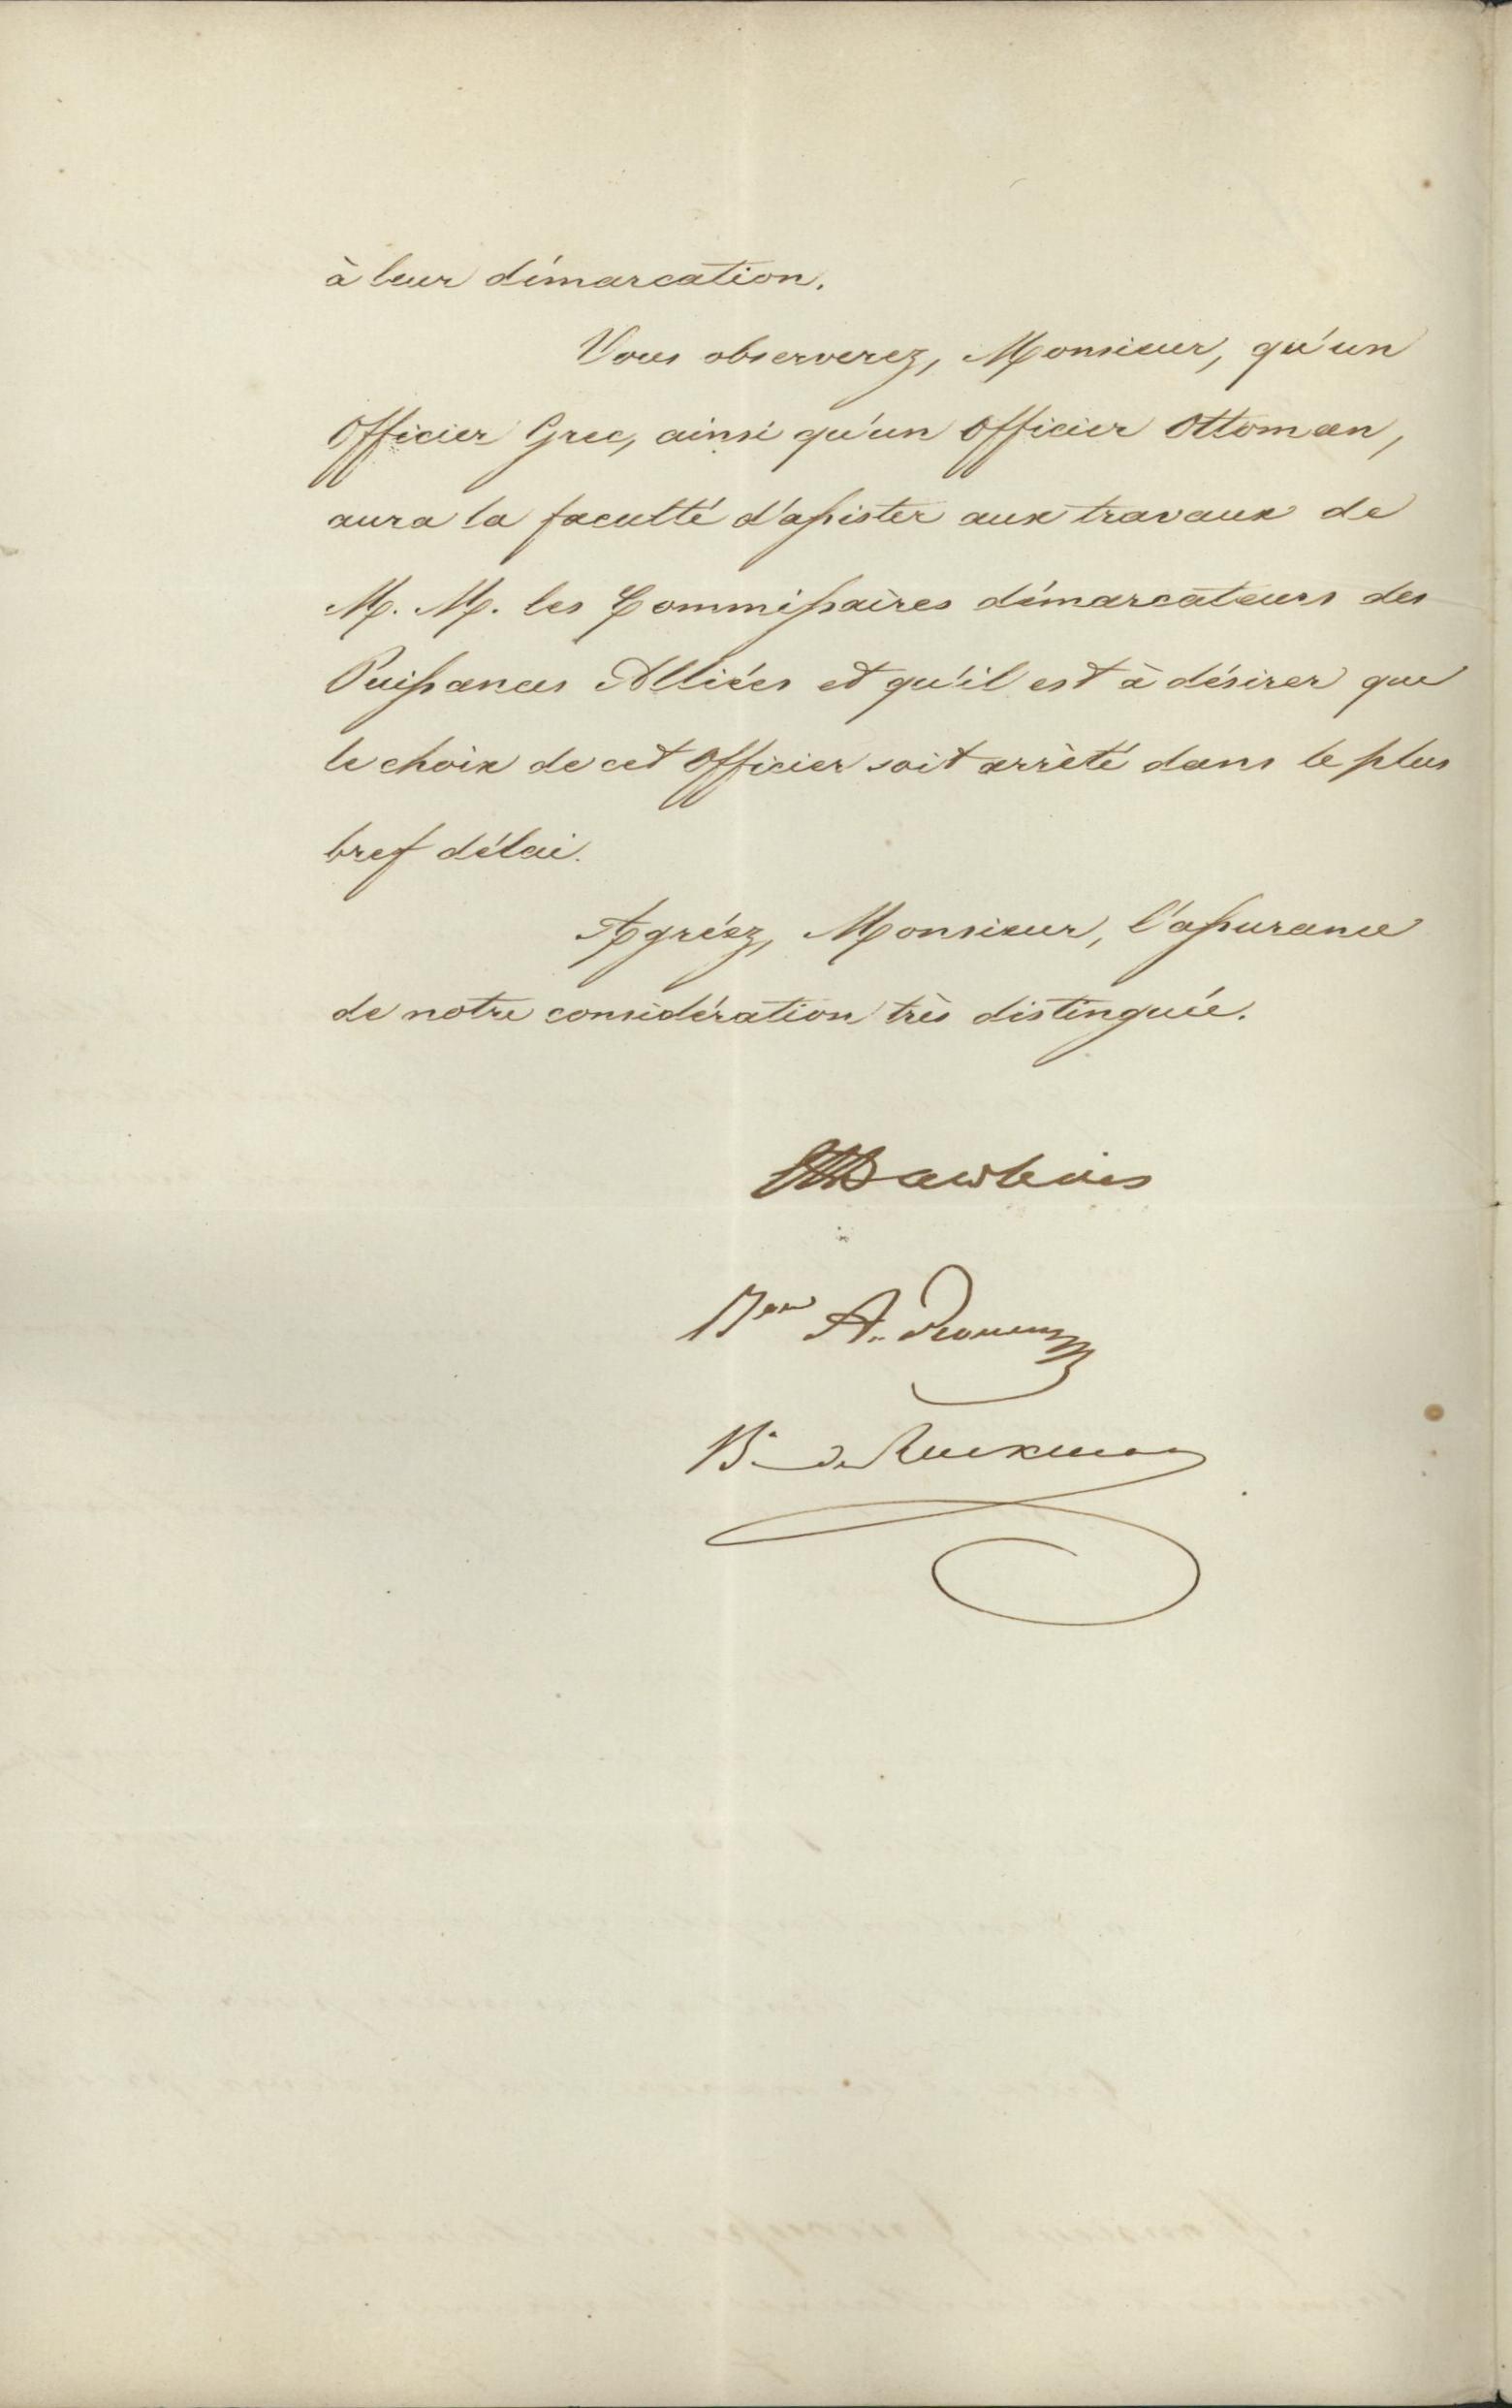 à leur démarcation.
Vous observerez, Monsieur, qu'un
Officier Grec, ainsi qu'un Officier Ottoman,
aura la faculté d'assister aux travaux de
M. M. les Commissaires démarcateurs des
Puissances Alliées et qu'il est à désirer que
le choix de cet Officier soit arrêté dans le plus
bref délai.
Agréez, Monsieur, l'assurance
de notre considération très distinguée.
Dawkins
Bon A. Rouen
Bn de Ruckman